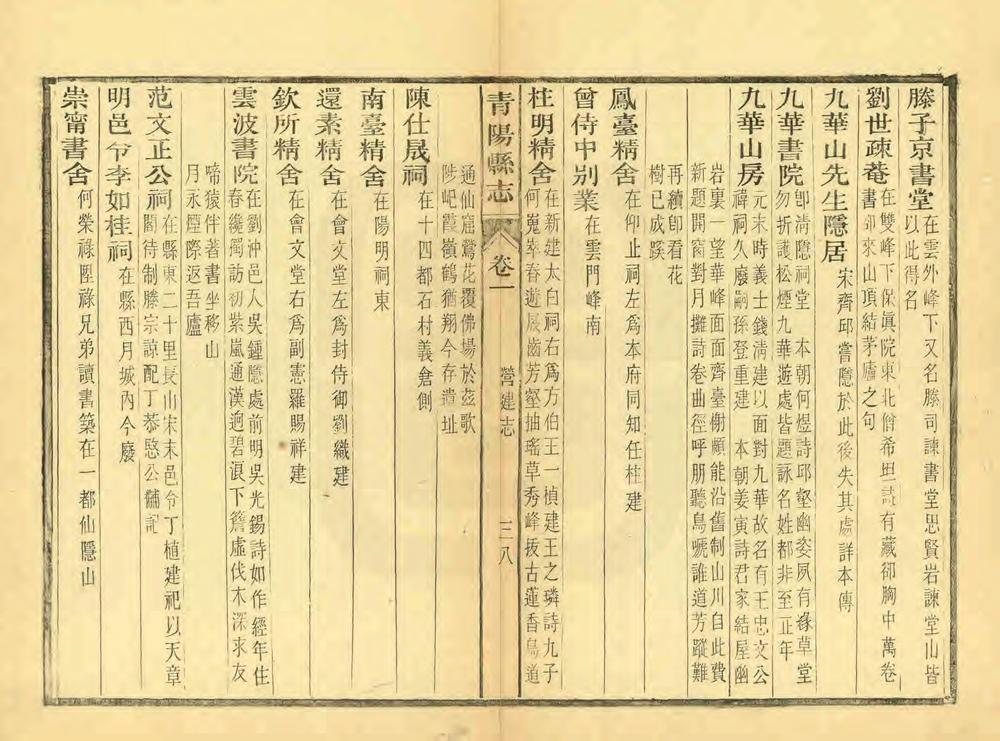 滕子京書堂在雲外峰下又名滕司諫書堂思賢岩諫堂山皆以此得名
劉世疎菴在雙峰下保眞院東北僧希坦詩有藏卻胸中萬卷書卻來山頂結茅廬之句
九華山先生隱居宋齊邱嘗隱於此後失其處詳本傳
九華書院卽淸隱祠堂 本朝何煜詩邱壑幽姿夙有緣草堂勿折護松煙九華遊處皆題詠名姓都非至正年
九華山房元末時義士錢淸建以面對九華故名有王忠文公禕祠久廢嗣孫登重建 本朝姜寅詩君家結屋幽
岩裏一望華峰面面齊臺榭頗能沿舊制山川自此費新題開窗對月攤詩卷曲徑呼朋聽鳥嗁誰道芳蹤難
再續卽看花樹已成蹊
鳳臺精舍在仰止祠左爲本府同知任柱建
曾侍中別業在雲門峰南
柱明精舍在新建太白祠右爲方伯王一楨建王之璘詩九子何嵬崒春遊屐齒芳壑抽瑤草秀峰拔古蓮香鳥道
青陽縣志 卷一 營建志 三八
通仙窟鶯花覆佛場於茲歌陟屺霞嶺鶴猶翔今存遺址
陳仕晟祠在十四都石村義倉側
南臺精舍在陽明祠東
還素精舍在會文堂左爲封侍御劉織建
欽所精舍在會文堂右爲副憲羅賜祥建
雲波書院在劉沖邑人吳鍾隱處前明吳光錫詩如作經年住春纔獨訪初紫嵐通漢迥碧浪下簷虛伐木深求友
啼猿伴著書坐移山月永煙際返吾廬
范文正公祠在縣東二十里長山宋末邑令丁植建祀以天章閣待制滕宗諒配丁恭愍公黼記
明邑令李如桂祠在縣西月城內今廢
崇甯書舍何榮祿陞祿兄弟讀書築在一都仙隱山